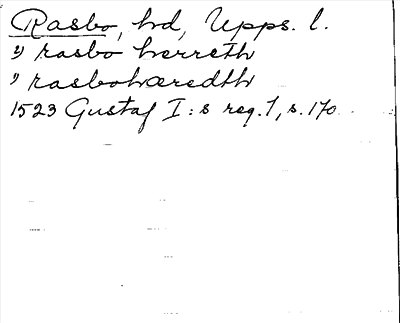 Rasbo, hd, Upps. l.
1) rasbo herreth
2) rasbohæredth
1523 Gustaf I:s reg. 1, s. 170